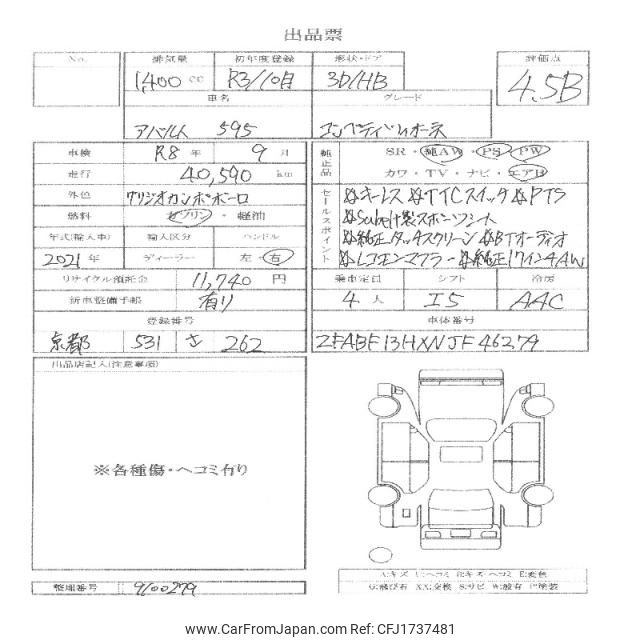 出品票
No.
排気量 初年度登録 形状・ドア 評価点
1,400 cc R3/10月 3D/HB 4.5B
車名 グレード
アバルト 595 コンペティツィオーネ
車検 R8 年 9 月
走行 40,590 km
外色 グリジオカンポボーロ
燃料 ガソリン・軽油
年式(輸入車) 輸入区分 ハンドル
2021年 ディーラー 左・右
リサイクル預託金 11,740 円
新車整備手帳 有り
登録番号
京都 531 さ 262
純正品 SR・純AW・PS・PW
カワ・TV・ナビ・エアB
セールスポイント
キーレス TTCスイッチ PTS
Sabelt製スポーツシート
純正タッチスクリーン BTオーディオ
レコモンマフラー 純正17インチAW
乗車定員 シフト 冷房
4 人 I5 AAC
車体番号
ZFABF13HXNJF46279
出品店記入(注意事項)
※各種傷・ヘコミ有り
整理番号 9100279
A:キズ U:ヘコミ B:キズ・ヘコミ E:変色
G:飛び石 XX:交換 S:サビ W:波有 P:塗装
www.CarFromJapan.com Photo Ref: CFJ1737481